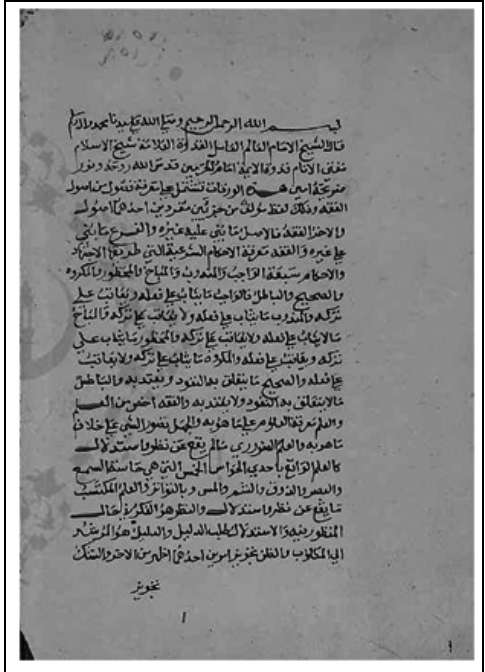 بسم الله الرحمن الرحيم وصلى الله على سيدنا محمد واله
قال الشيخ الامام العالم الفاضل القدوة العلامة شيخ الاسلام
مفتي الانام قدوة الايمة امام الحرمين قدس الله روحه ونور
ضريحه امين هذه الورقات تشتمل على معرفة فصول من اصول
الفقه وذلك لفظ مولف من جزئين مفردين احدهما اصول
والاخر الفقه فالاصل ما بني عليه غيره والفرع ما بني
على غيره والفقه معرفة الاحكام الشرعية التي طريقها الاجتهاد
والاحكام سبعة الواجب والمندوب والمباح والمحظور والمكروه
والصحيح والباطل فالواجب ما يثاب على فعله ويعاقب على
تركه والمندوب ما يثاب على فعله ولا يعاقب على تركه والمباح
ما لا يثاب على فعله ولا يعاقب على تركه والمحظور ما يثاب على
تركه ويعاقب على فعله والمكروه ما يثاب على تركه ولا يعاقب
على فعله والصحيح ما يتعلق به النفوذ ويعتد به والباطل
ما لا يتعلق به النفوذ ولا يعتد به والفقه اخص من العلم
والعلم معرفة المعلوم على ما هو به والجهل تصور الشي على خلاف
ما هو به والعلم الضروري ما لم يقع عن نظر واستدلال
كالعلم الواقع باحدى الحواس الخمس التي هي حاسة السمع
والبصر والذوق والشم واللمس وبالتواتر والعلم المكتسب
ما يقع عن نظر واستدلال والنظر هو الفكر في حال
المنظور فيه والاستدلال طلب الدليل والدليل هو المرشد
الى المطلوب والظن تجويز امرين احدهما اظهر من الاخر والشك
تجويز